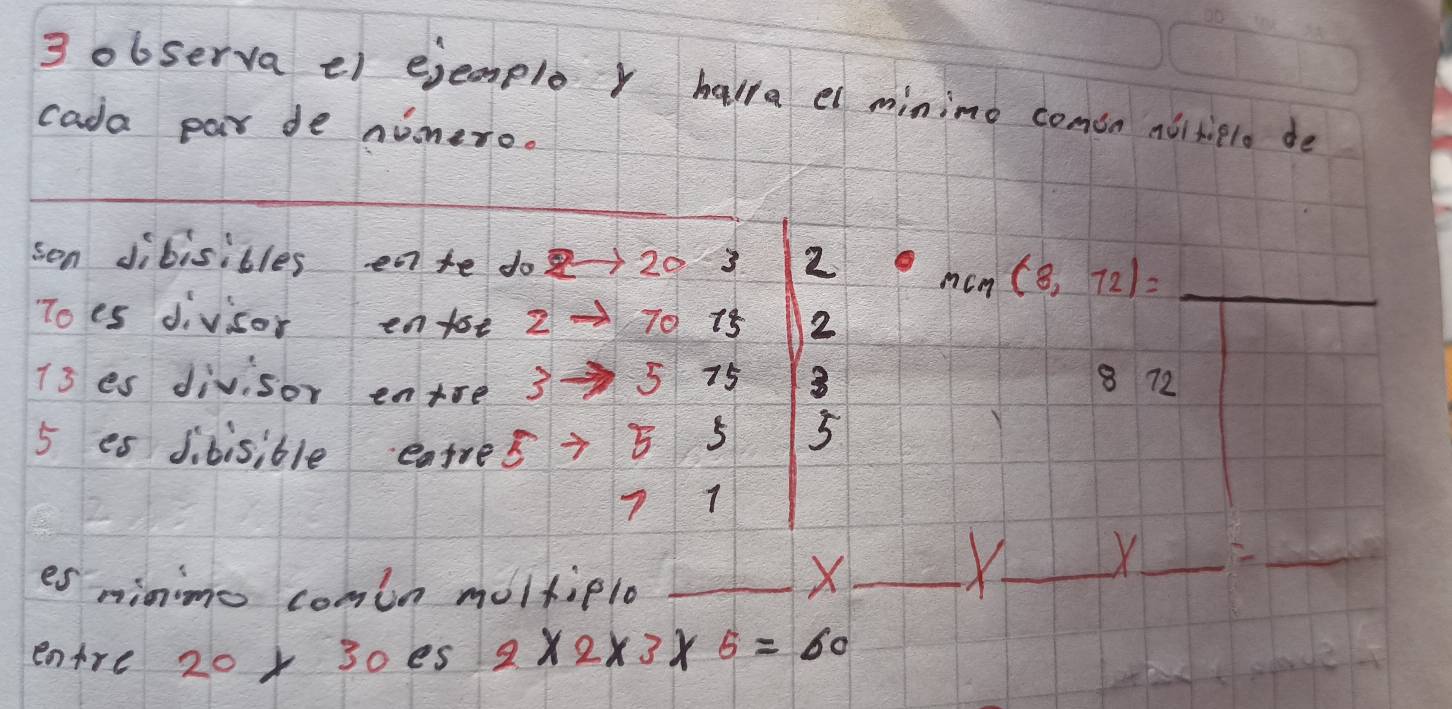 3 observa el ejemplo y halla el mínimo común múltiplo de
cada par de número.
son dibisibles ente do2 → 20 3 | 2
10 es divisor entre 2 → 10 15 | 2
13 es divisor entre 3 → 5 15 | 3
5 es dibisible entre 5 → 5 5 | 5
1 1
• mcm (8, 12) = ____
8 12
____ X ____ X ____ X ____ = ____
es minimo común moltiplo
entre 20 y 30 es 2 X 2 X 3 X 5 = 60